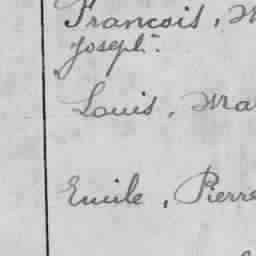 Francois,
Joseph.
Louis, Ma
Emile, Pierre